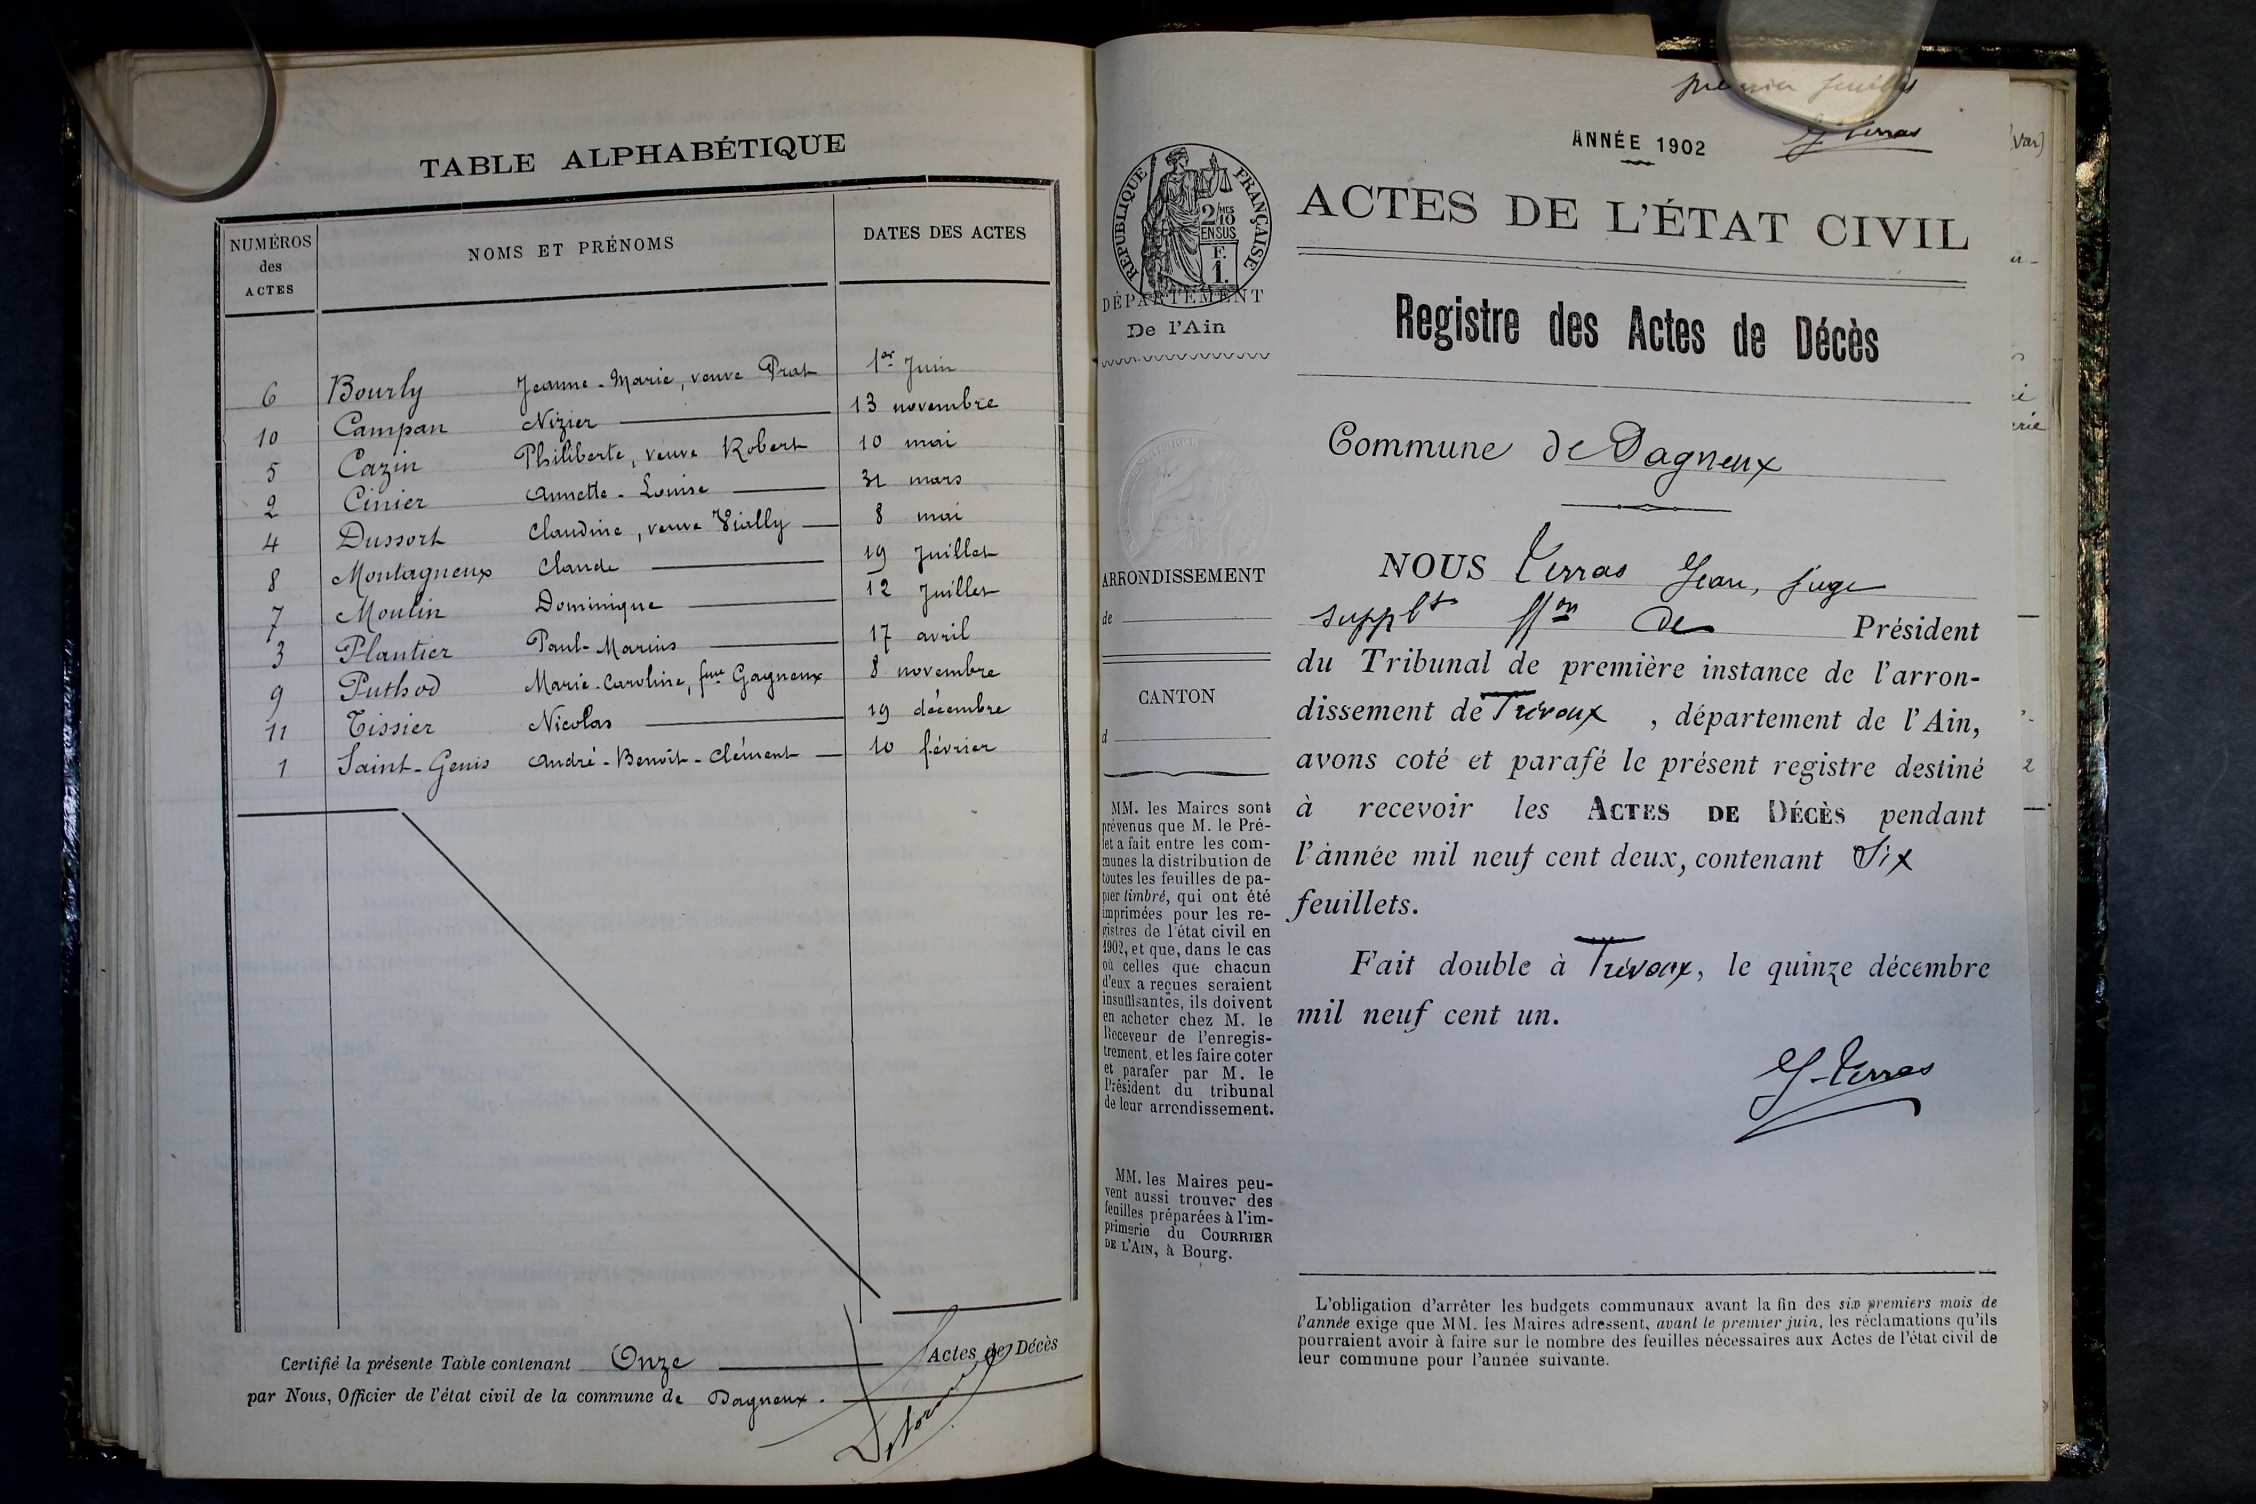 TABLE ALPHABÉTIQUE
NUMÉROS des ACTES | NOMS ET PRÉNOMS | DATES DES ACTES
6 Bourly Jeanne-Marie, veuve Prat 1er Juin
10 Campan Nizier 13 novembre
5 Cazin Philiberte, veuve Robert 10 mai
2 Cinier Annette-Louise 31 mars
4 Dussort Claudine, veuve Vially 8 mai
8 Montagneux Claude 19 Juillet
7 Moulin Dominique 12 Juillet
3 Plantier Paul-Marius 17 avril
9 Puthod Marie-Caroline, fme Gagneux 8 novembre
11 Tissier Nicolas 19 décembre
1 Saint-Genis André-Benoît-Clément 10 février
Certifié la présente Table contenant Onze Actes de Décès
par Nous, Officier de l'état civil de la commune de Dagneux.
premier feuillet
ANNÉE 1902
ACTES DE L'ÉTAT CIVIL
RÉPUBLIQUE FRANÇAISE
2/10MES
EN SUS
F.
1.
DÉPARTEMENT
De l'Ain
Registre des Actes de Décès
Commune de Dagneux
ARRONDISSEMENT
de
CANTON
d
MM. les Maires sont
prévenus que M. le Pré-
fet a fait entre les com-
munes la distribution de
toutes les feuilles de pa-
pier timbré, qui ont été
imprimées pour les re-
gistres de l'état civil en
1902, et que, dans le cas
où celles que chacun
d'eux a reçues seraient
insuffisantes, ils doivent
en acheter chez M. le
Receveur de l'enregis-
trement, et les faire coter
et parafer par M. le
Président du tribunal
de leur arrondissement.
MM. les Maires peu-
vent aussi trouver des
feuilles préparées à l'im-
primerie du COURRIER
DE L'AIN, à Bourg.
NOUS Verras Jean, Juge
supplt ffon de Président
du Tribunal de première instance de l'arron-
dissement de Trévoux, département de l'Ain,
avons coté et parafé le présent registre destiné
à recevoir les ACTES DE DÉCÈS pendant
l'année mil neuf cent deux, contenant Six
feuillets.
Fait double à Trévoux, le quinze décembre
mil neuf cent un.
L'obligation d'arrêter les budgets communaux avant la fin des six premiers mois de
l'année exige que MM. les Maires adressent, avant le premier juin, les réclamations qu'ils
pourraient avoir à faire sur le nombre des feuilles nécessaires aux Actes de l'état civil de
leur commune pour l'année suivante.